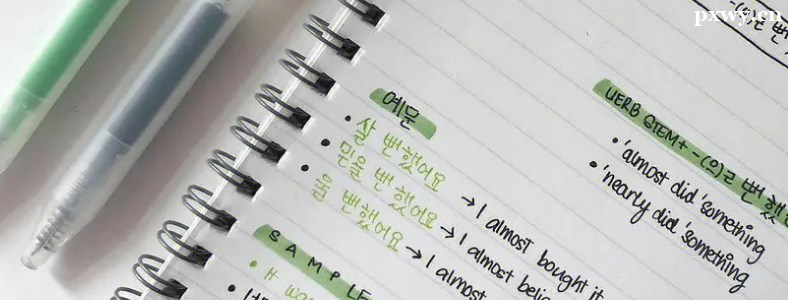 pxwy.cn
예문
• 살 뻔했어요 → I almost bought it
• 믿을 뻔했어요 → I almost
• 울 뻔했어요 → I almost
VERB STEM + -(으)ㄹ 뻔했
• 'almost did' something
• 'nearly did' something
SAMPLE
• It